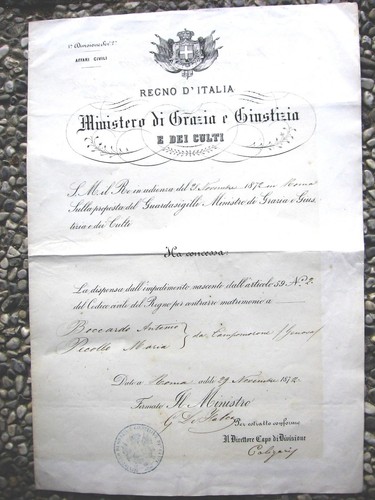 1ª Divisione Sez. 2ª
AFFARI CIVILI
REGNO D'ITALIA
Ministero di Grazia e Giustizia
E DEI CULTI
S. M. il Re in udienza del 21 Novembre 1872 in Roma
Sulla proposta del Guardasigillo Ministro di Grazia e Gius
tizia e dei Culti
Ha concessa
La dispensa dall'impedimento nascente dall'articolo 59 N.º 2.
del Codice civile del Regno per contrarre matrimonio a
Boccardo Antonio
Picollo Maria
da Campomorone (Genova)
Dato a Roma addì 29 Novembre 1872
Firmato Il Ministro
G De Falco
Per estratto conforme
Il Direttore Capo di Divisione